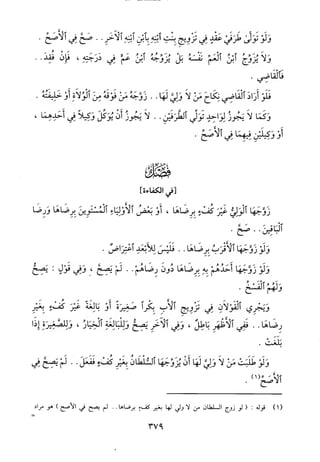 وَلَوْ تَوَلَّىٰ طَرَفَيْ عَقْدٍ فِي تَزْوِيجِ بِنْتِ ٱبْنِهِ بِٱبْنِ ٱبْنِهِ ٱلْآخَرِ.. صَحَّ فِي ٱلْأَصَحِّ .
وَلَا يُزَوِّجُ ٱبْنُ ٱلْعَمِّ نَفْسَهُ بَلْ يُزَوِّجُهُ ٱبْنُ عَمٍّ فِي دَرَجَتِهِ ، فَإِنْ فُقِدَ..
فَٱلْقَاضِي .
فَلَوْ أَرَادَ ٱلْقَاضِي نِكَاحَ مَنْ لَا وَلِيَّ لَهَا.. زَوَّجَهُ مَنْ فَوْقَهُ مِنَ ٱلْوُلَاةِ أَوْ خَلِيفَتُهُ .
وَكَمَا لَا يَجُوزُ لِوَاحِدٍ تَوَلِّي ٱلطَّرَفَيْنِ.. لَا يَجُوزُ أَنْ يُوَكِّلَ وَكِيلاً فِي أَحَدِهِمَا ،
أَوْ وَكِيلَيْنِ فِيهِمَا فِي ٱلْأَصَحِّ .
فَصْلٌ
[في الكفاءة]
زَوَّجَهَا ٱلْوَلِيُّ غَيْرَ كُفْءٍ بِرِضَاهَا ، أَوْ بَعْضُ ٱلْأَوْلِيَاءِ ٱلْمُسْتَوِينَ بِرِضَاهَا وَرِضَا
ٱلْبَاقِينَ.. صَحَّ .
وَلَوْ زَوَّجَهَا ٱلْأَقْرَبُ بِرِضَاهَا.. فَلَيْسَ لِلْأَبْعَدِ ٱعْتِرَاضٌ .
وَلَوْ زَوَّجَهَا أَحَدُهُمْ بِهِ بِرِضَاهَا دُونَ رِضَاهُمْ.. لَمْ يَصِحَّ ، وَفِي قَوْلٍ : يَصِحُّ
وَلَهُمُ ٱلْفَسْخُ .
وَيَجْرِي ٱلْقَوْلَانِ فِي تَزْوِيجِ ٱلْأَبِ بِكْراً صَغِيرَةً أَوْ بَالِغَةً غَيْرَ كُفْءٍ بِغَيْرِ
رِضَاهَا.. فَفِي ٱلْأَظْهَرِ بَاطِلٌ ، وَفِي ٱلْآخَرِ يَصِحُّ وَلِلْبَالِغَةِ ٱلْخِيَارُ ، وَلِلصَّغِيرَةِ إِذَا
بَلَغَتْ .
وَلَوْ طَلَبَتْ مَنْ لَا وَلِيَّ لَهَا أَنْ يُزَوِّجَهَا ٱلسُّلْطَانُ بِغَيْرِ كُفْءٍ فَفَعَلَ.. لَمْ يَصِحَّ فِي
ٱلْأَصَحِّ(١) .
(١) قوله : ( لو زوج السلطان من لا ولي لها بغير كفء برضاها.. لم يصح في الأصح ) هو مراد
٣٧٩